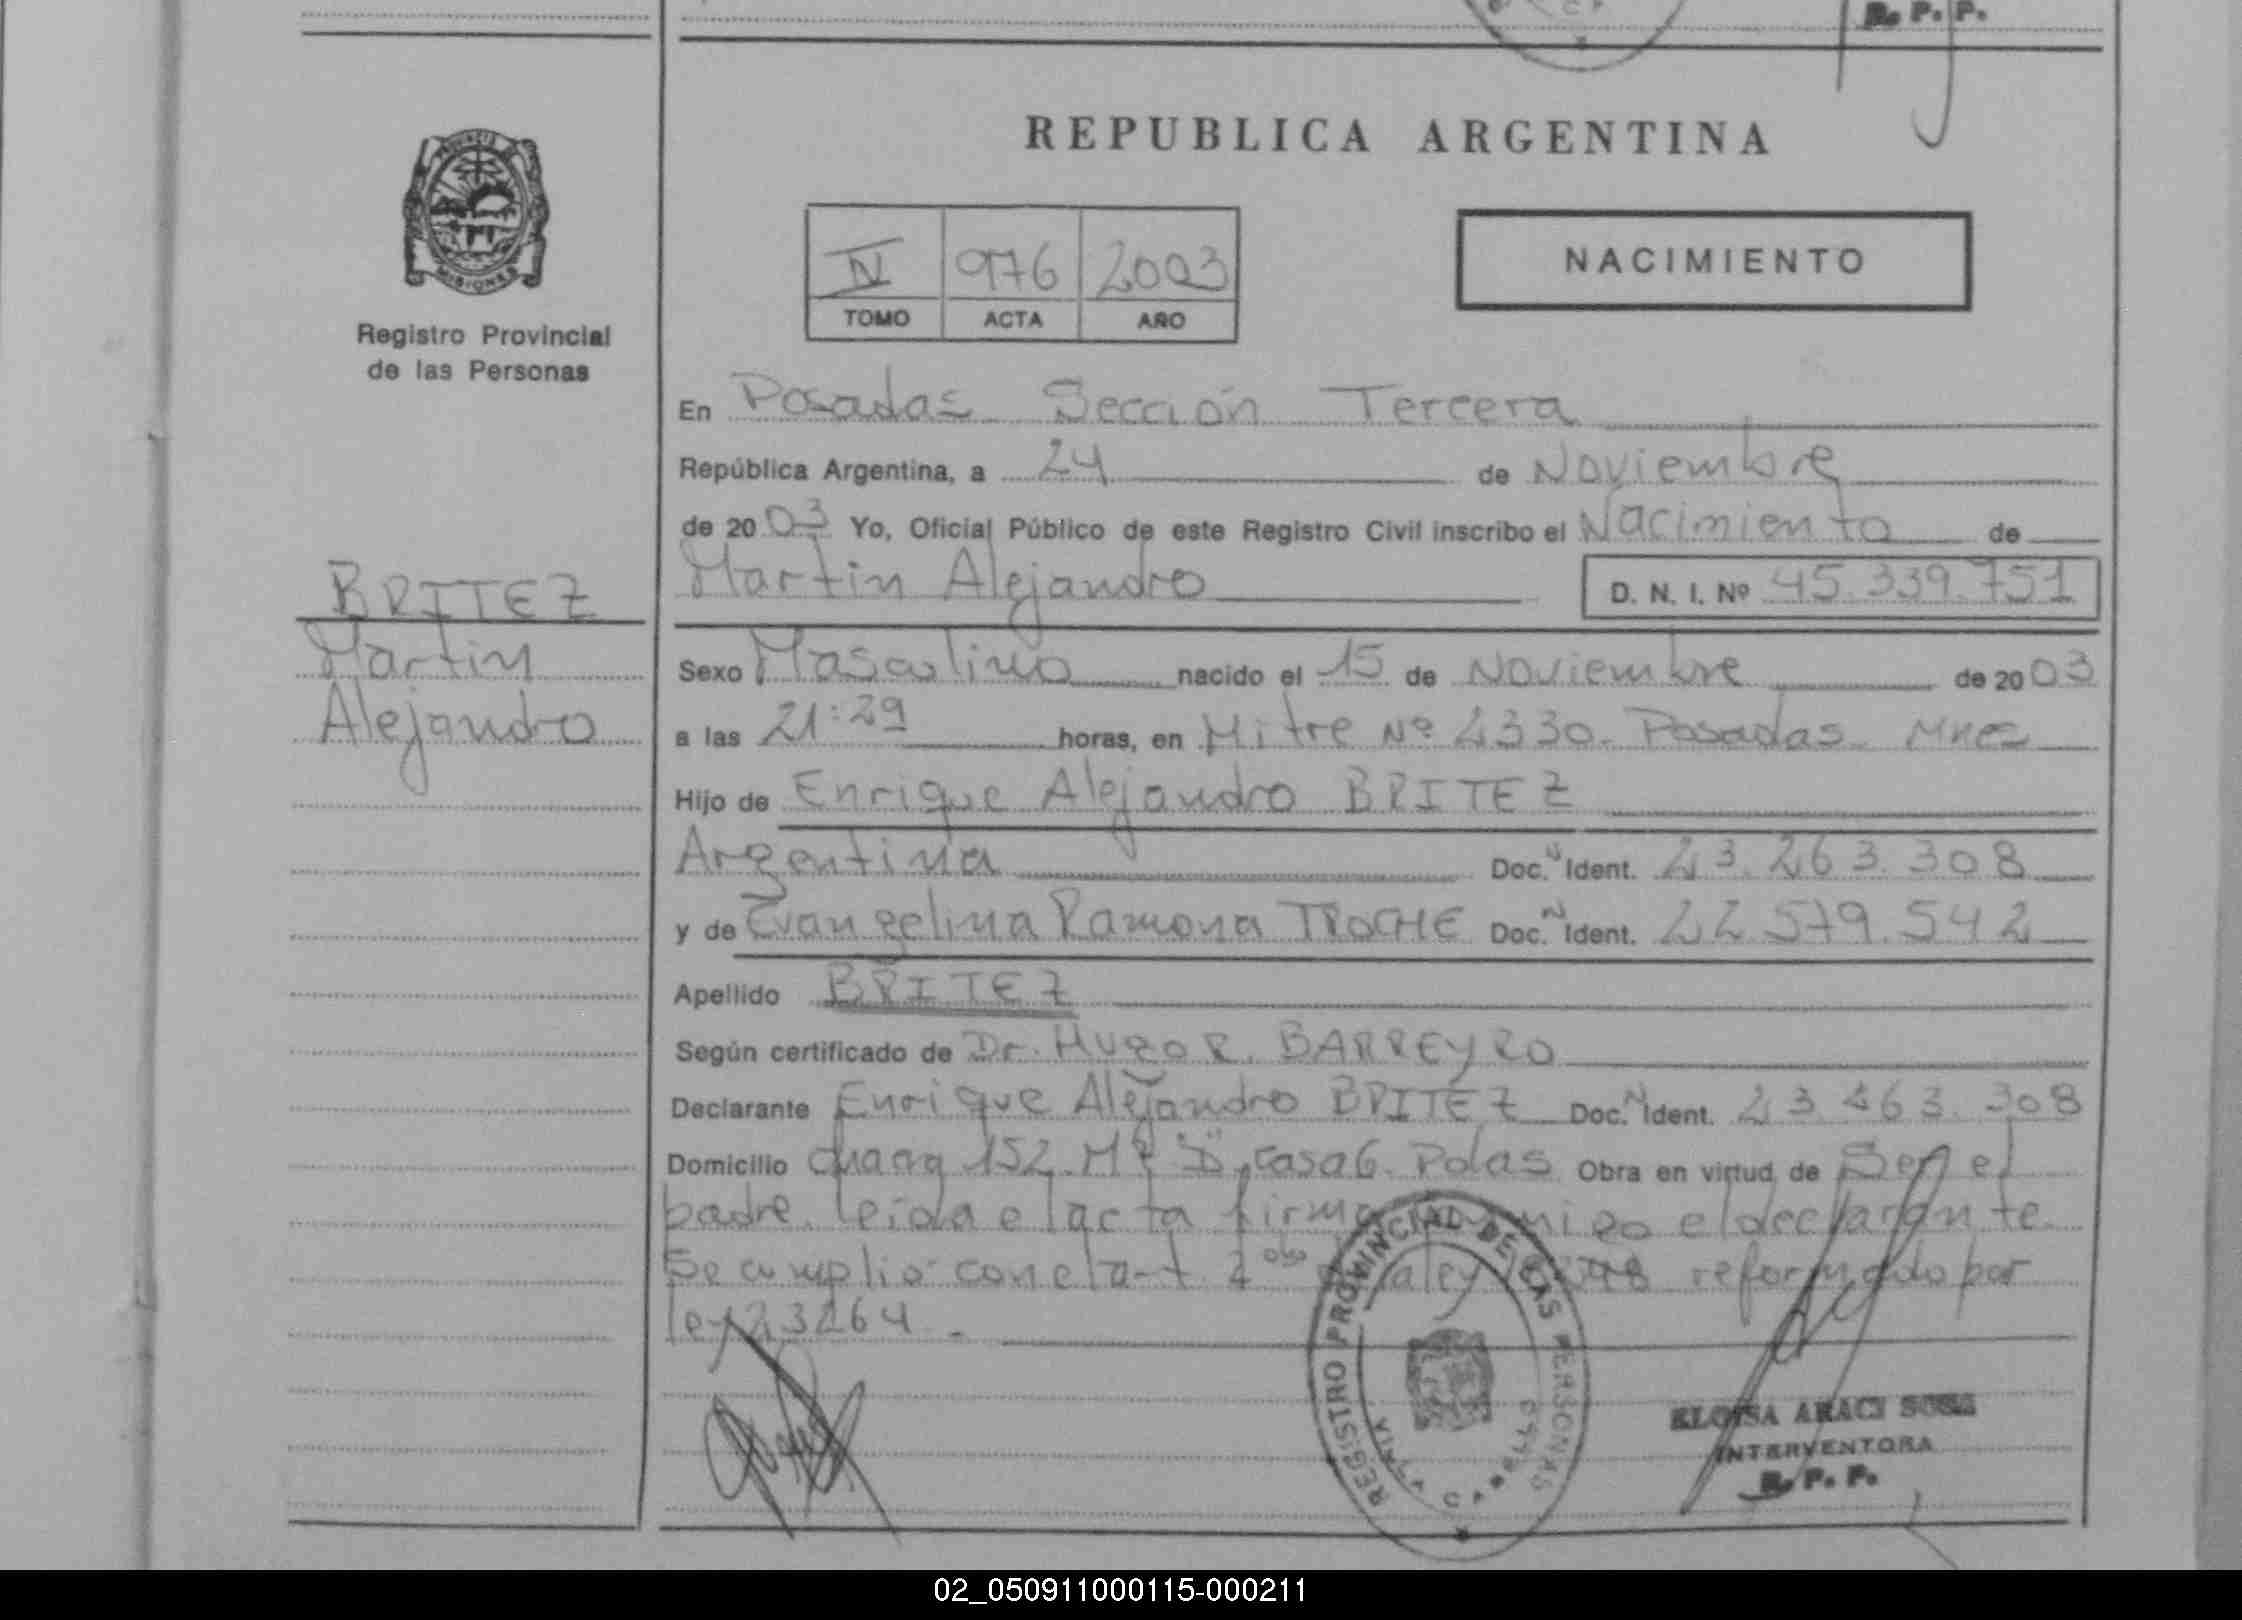 R. P. P.
REPUBLICA ARGENTINA
PROVINCIA DE
MISIONES
Registro Provincial
de las Personas
IV 976 2003
TOMO ACTA AÑO
NACIMIENTO
En Posadas Sección Tercera
República Argentina, a 24 de Noviembre
de 2003 Yo, Oficial Público de este Registro Civil inscribo el Nacimiento de
Martin Alejandro D. N. I. Nº 45.339.751
BRITEZ
Martin
Alejandro
Sexo Masculino nacido el 15 de Noviembre de 2003
a las 21:29 horas, en Mitre Nº 2330. Posadas Mnes
Hijo de Enrique Alejandro BRITEZ
Argentina Doc. Ident. 23.263.308
y de Evangelina Ramona TROCHE Doc. Ident. 22.579.542
Apellido BRITEZ
Según certificado de Dr. Hugo R. BARREYRO
Declarante Enrique Alejandro BRITEZ Doc. Ident. 23.263.308
Domicilio chacra 152 Mº "D" casa 6 Pdas Obra en virtud de Ser el
padre. leida el acta firma conmigo el declarante
Se cumplio con el art 2º de la ley reformado por
ley 23264.-
REGISTRO PROVINCIAL DE LAS PERSONAS
ELOISA ARACI SOSA
INTERVENTORA
R. P. P.
02_050911000115-000211